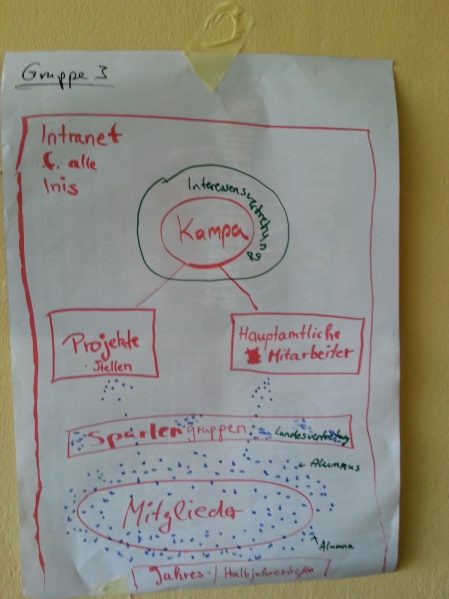 Gruppe 3
Intranet
f. alle
Inis
Interessensvertretung
Kampa
Projekte
- Stellen
Hauptamtliche
Mitarbeiter
Spartengruppen
Landesvertretung
Alumnus
Mitglieder
Alumna
Jahres-/Halbjahrestreffen